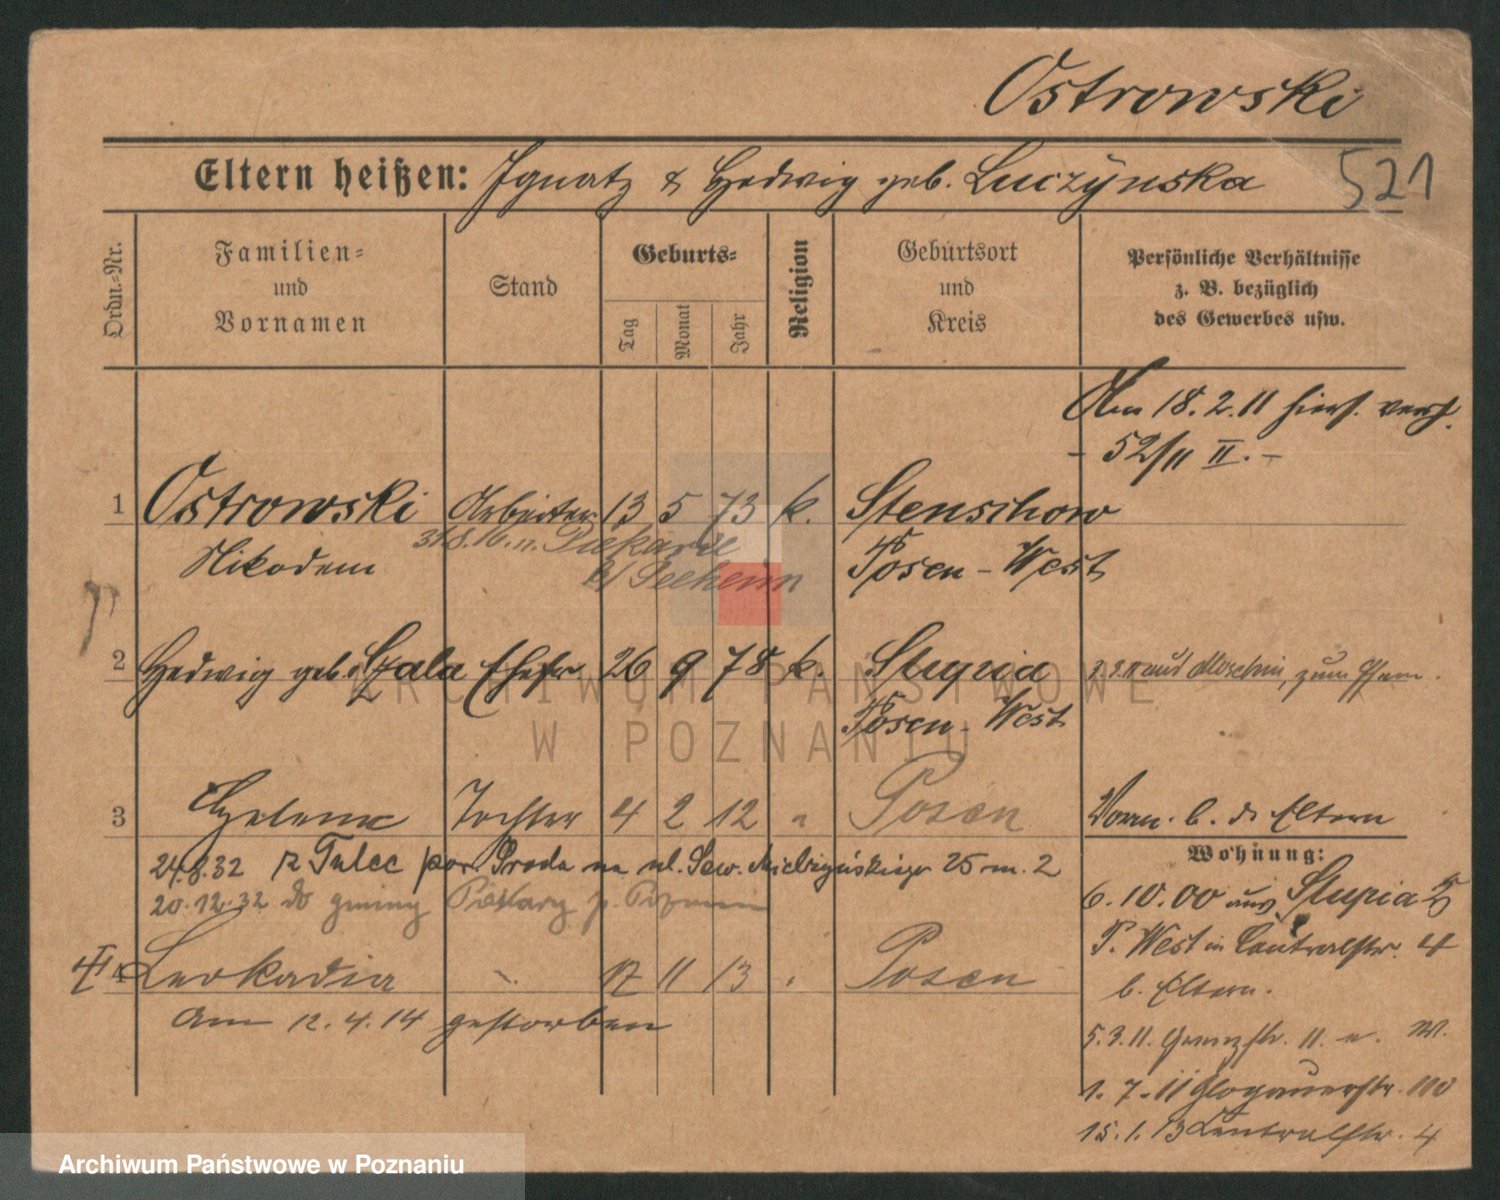 Ostrowski
Eltern heißen: Ignatz & Hedwig geb. Luczýnska
521
Ordn.-Nr.
Familien=
und
Vornamen
Stand
Geburts=
Tag
Monat
Jahr
Religion
Geburtsort
und
Kreis
Persönliche Verhältnisse
z. B. bezüglich
des Gewerbes usw.
Am 18.2.11 hiers. verh.
- 52/11 II. -
1 Ostrowski Arbeiter 13 5 73 k. Stenschow
Nikodem
31.8.16. n. Piekarie
b/ Seeheim
Posen - West
2 Hedwig geb. Szala Ehefr 26 9 78 k. Stupia
3.3.11 aus Moschin, zum
Posen - West
3 Helene Tochter 4 2 12 " Posen
Vorm. b. d. Eltern
24.8.32 z Tulec por Sroda na ul. Sew. Mielżyńskiego 25 m. 2
20.12.32 do gminy Piekary p. Poznan
4 Leokadia 17 11 13 " Posen
am 12.4.14 gestorben
Wohnung:
6.10.00 aus Stupia
P. West in Centralstr. 4
b. Eltern.
5.3.11. Grenzstr. 11. W.
1.7.11 Glogauerstr. 110
15.1.13 Centralstr. 4
ARCHIWUM PAŃSTWOWE
W POZNANIU
Archiwum Państwowe w Poznaniu